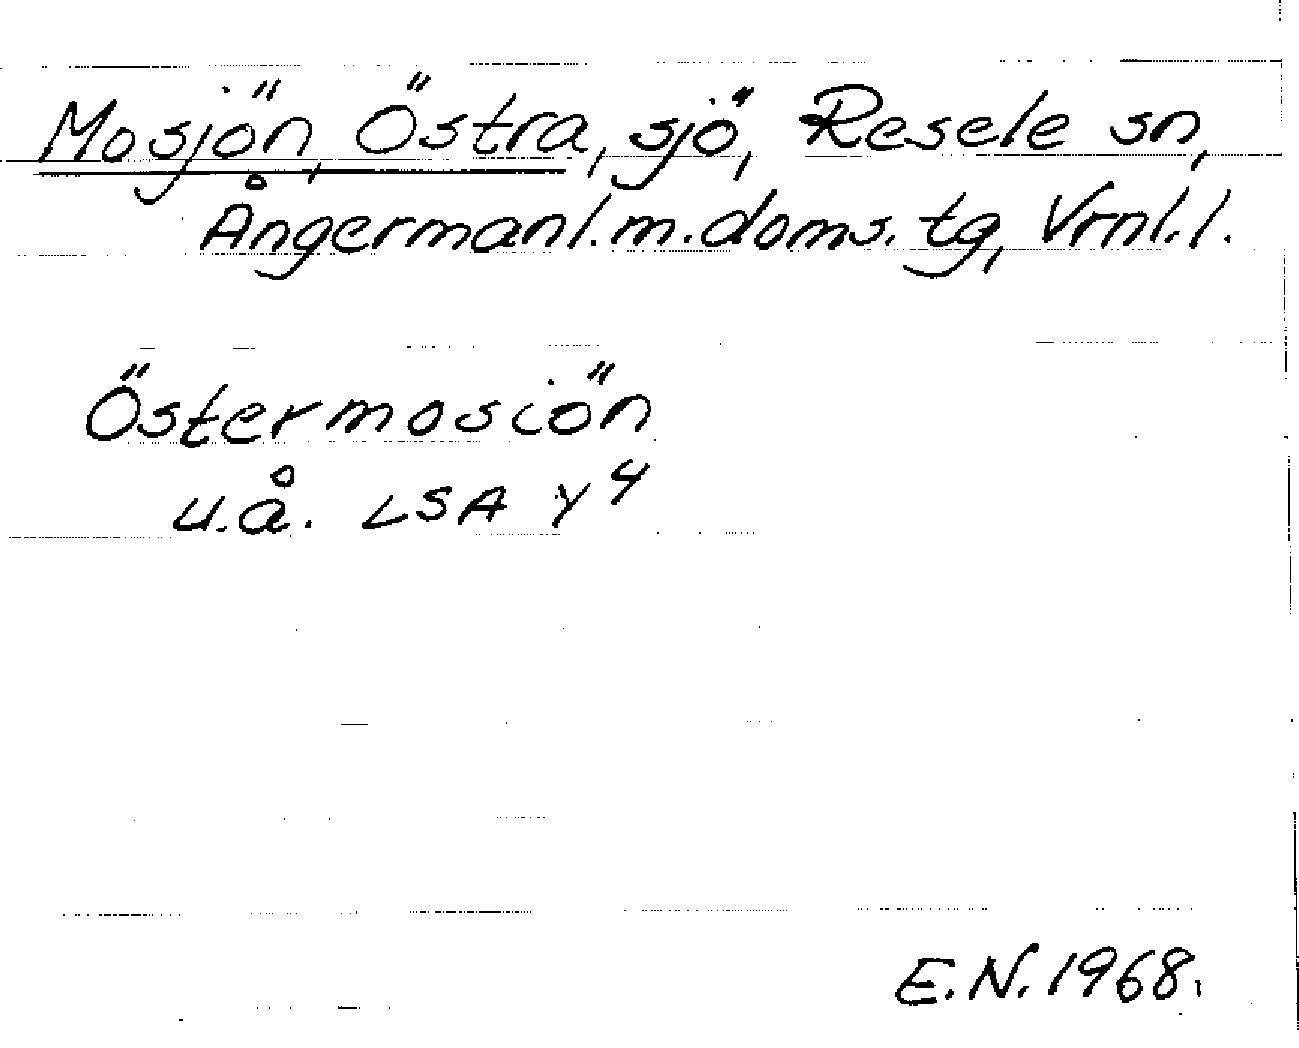 Mosjön, Östra, sjö, Resele sn,
Ångermanl.m.doms.tg, Vrnl.l.
Östermosiön
u.å. LSA Y4
E.N.1968.